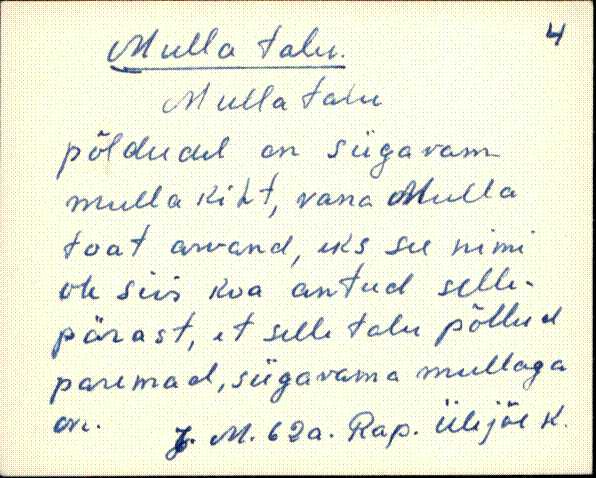 4
Mulla talu.
Mulla talu
põldudel on sügavam
mulla kiht, vana Mulla
toat arvand, eks see nimi
ole siis koa antud selle-
pärast, et selle talu põllud
paremad, sügavama mullaga
on.
J. M. 62a. Rap. Ülejõe k.